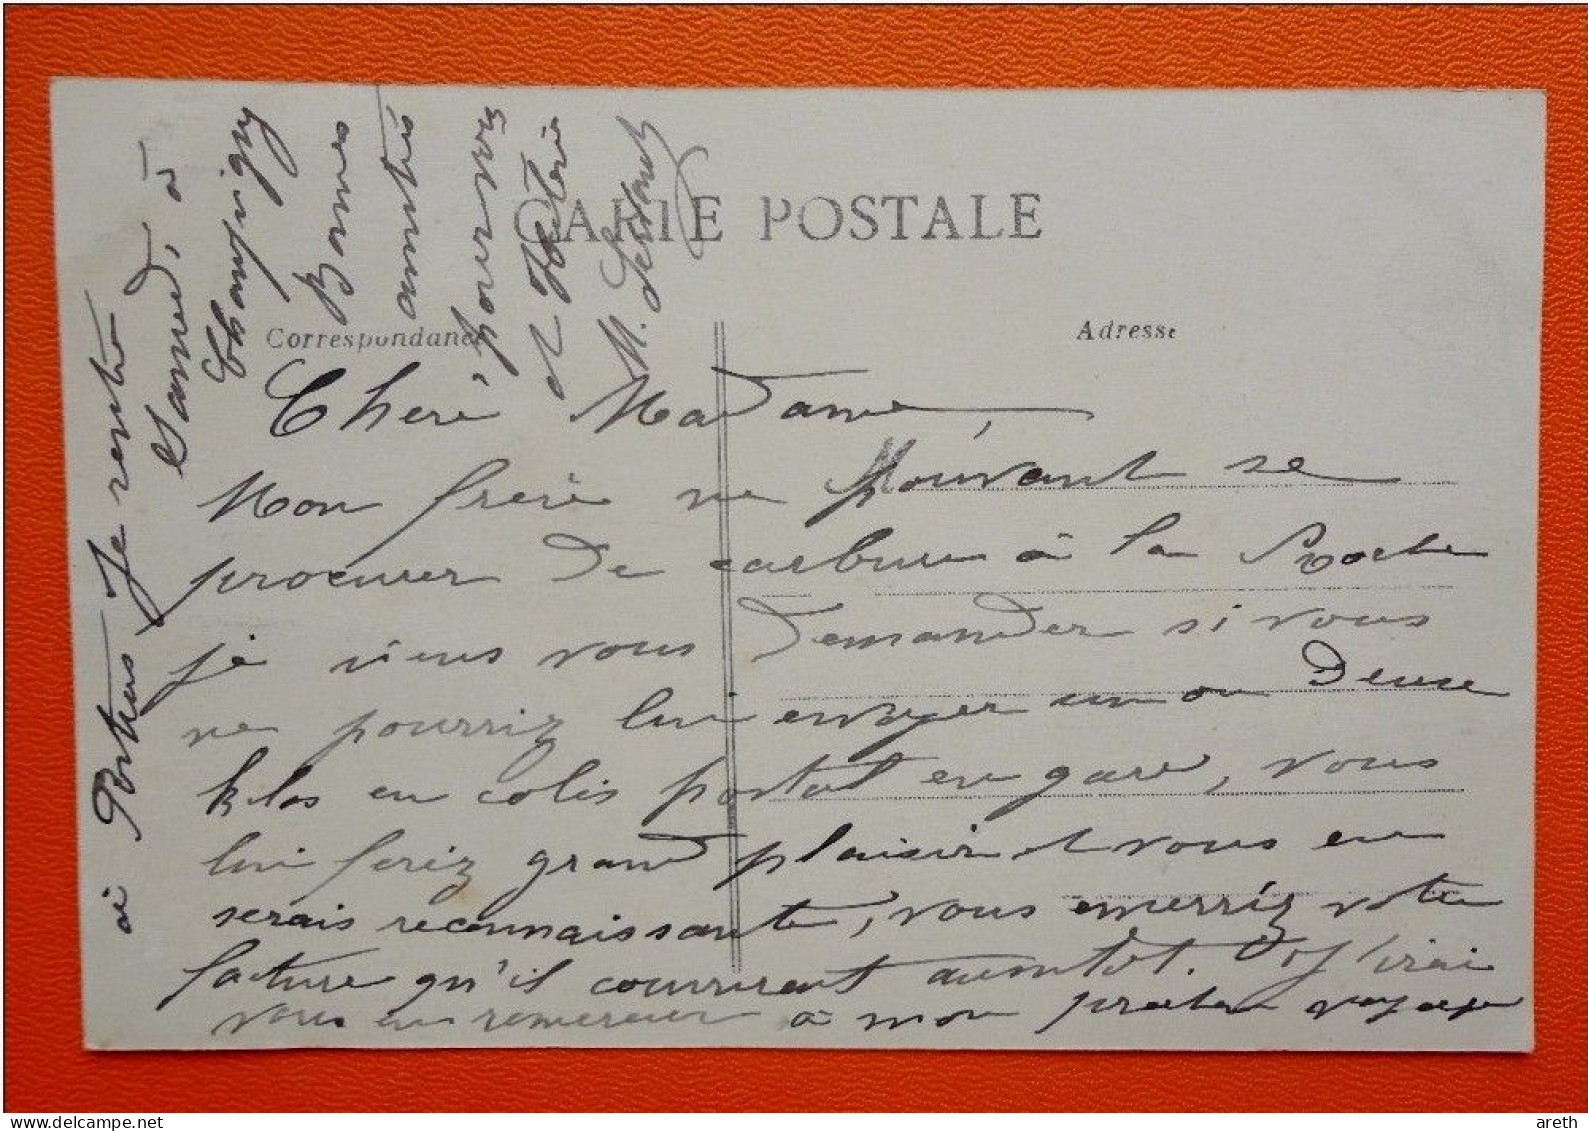 CARTE POSTALE
Correspondance
Adresse
Chère Madame,
Mon frère ne pouvant se
procurer de carbure à la Roche
je viens vous demander si vous
ne pourriz lui envoyer un ou deux
kilos en colis postal en gare, vous
lui feriz grand plaisir et vous en
serais reconnaissante, vous enverriz votre
facture qu'il couvrirait aussitôt. J'irai
vous en remercier à mon prochain voyage
à Poitiers Je rentre
Samedi, à
Champigny
Bonnes
amitiés
pour vous
et
M.
areth
www.delcampe.net